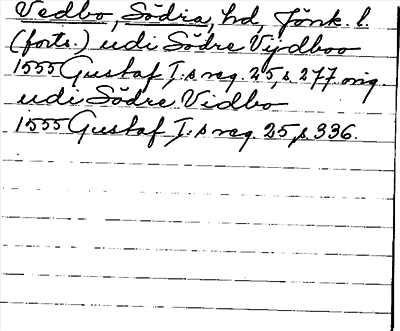 Vedbo, Södra, hd, Jönk. l.
(forts.) udi Södre Vijdboo
1555 Gustaf I:s reg. 25, s. 277. orig.
udi Södre Vidbo
1555 Gustaf I:s reg. 25, s 336.